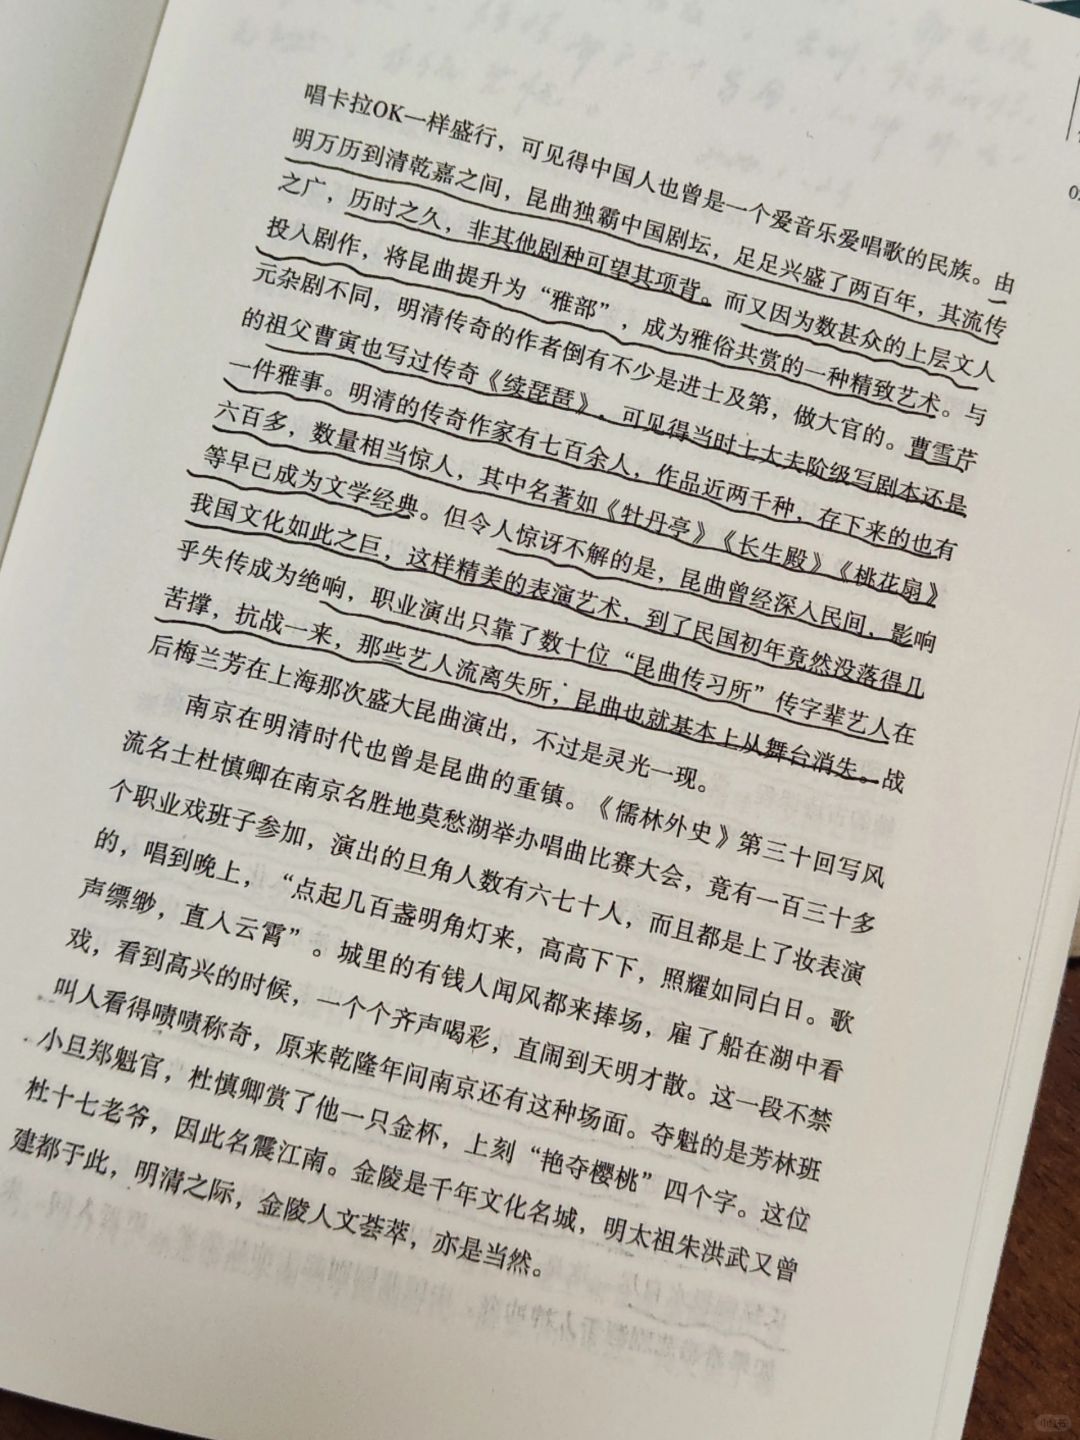 唱卡拉OK一样盛行，可见得中国人也曾是一个爱音乐爱唱歌的民族。由
明万历到清乾嘉之间，昆曲独霸中国剧坛，足足兴盛了两百年，其流传
之广，历时之久，非其他剧种可望其项背。而又因为数甚众的上层文人
投入剧作，将昆曲提升为“雅部”，成为雅俗共赏的一种精致艺术。与
元杂剧不同，明清传奇的作者倒有不少是进士及第，做大官的。曹雪芹
的祖父曹寅也写过传奇《续琵琶》，可见得当时士大夫阶级写剧本还是
一件雅事。明清的传奇作家有七百余人，作品近两千种，存下来的也有
六百多，数量相当惊人，其中名著如《牡丹亭》《长生殿》《桃花扇》
等早已成为文学经典。但令人惊讶不解的是，昆曲曾经深入民间，影响
我国文化如此之巨，这样精美的表演艺术，到了民国初年竟然没落得几
乎失传成为绝响，职业演出只靠了数十位“昆曲传习所”传字辈艺人在
苦撑，抗战一来，那些艺人流离失所，昆曲也就基本上从舞台消失。战
后梅兰芳在上海那次盛大昆曲演出，不过是灵光一现。
南京在明清时代也曾是昆曲的重镇。《儒林外史》第三十回写风
流名士杜慎卿在南京名胜地莫愁湖举办唱曲比赛大会，竟有一百三十多
个职业戏班子参加，演出的旦角人数有六七十人，而且都是上了妆表演
的，唱到晚上，“点起几百盏明角灯来，高高下下，照耀如同白日。歌
声缥缈，直入云霄”。城里的有钱人闻风都来捧场，雇了船在湖中看
戏，看到高兴的时候，一个个齐声喝彩，直闹到天明才散。这一段不禁
叫人看得啧啧称奇，原来乾隆年间南京还有这种场面。夺魁的是芳林班
小旦郑魁官，杜慎卿赏了他一只金杯，上刻“艳夺樱桃”四个字。这位
杜十七老爷，因此名震江南。金陵是千年文化名城，明太祖朱洪武又曾
建都于此，明清之际，金陵人文荟萃，亦是当然。
小红书